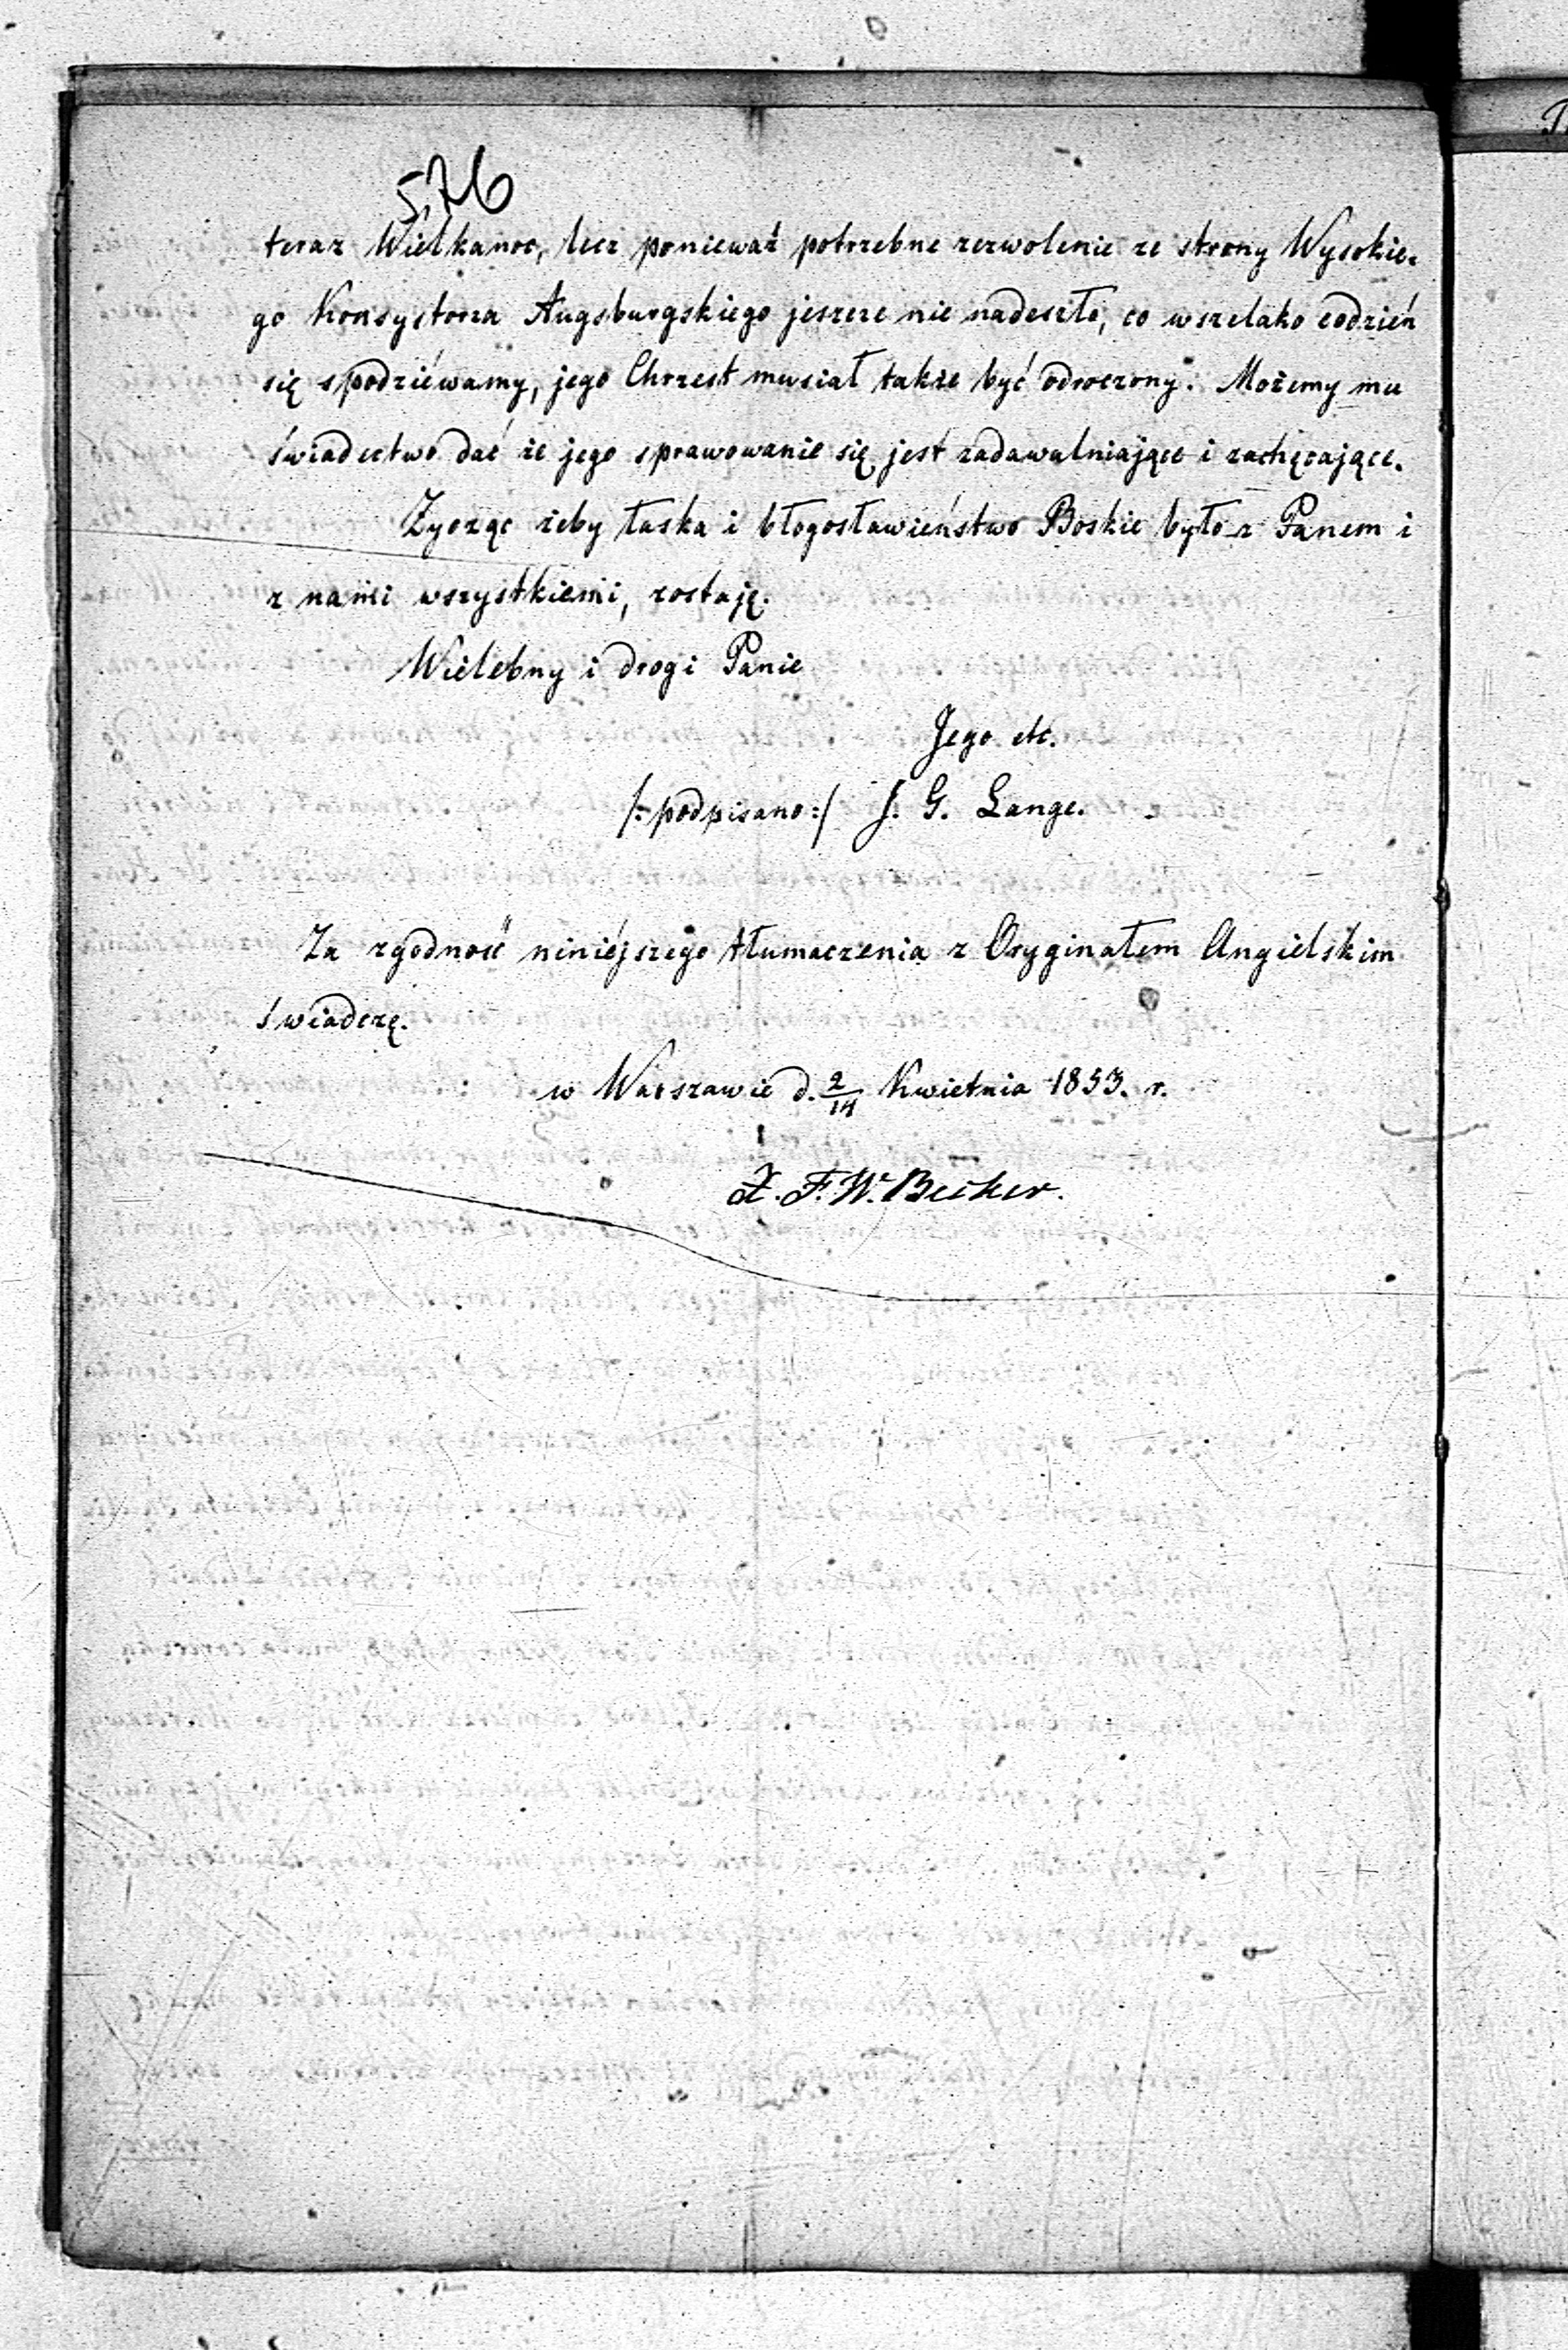 576
teraz Wielkanoc, lecz ponieważ potrzebne zezwolenie ze strony Wysokie-
go Konsystorza Augsburgskiego jeszcze nie nadeszło, co wszelako codzień
się spodziéwamy, jego Chrzest musiał także być odroczony. Możemy mu
świadectwo dać że jego sprawowanie się jest zadawalniające i zachęcające.
Życząc żeby łaska i błogosławieństwo Boskie było z Panem i
z nami wszystkiemi, zostaję.
Wielebny i drogi Panie
Jego etc.
/:podpisano:/ J. G. Lange.
Za zgodność niniéjszego tłumaczenia z Oryginałem Angielskim
świadczę.
w Warszawie d. 2/14 Kwietnia 1853. r.
F. W. Becker.